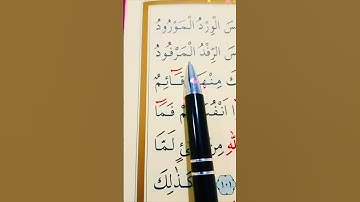 سَ الْوِرْدُ الْمَوْرُودُ
سَ الرِّفْدُ الْمَرْفُودُ
كَ مِنْهَا قَٓائِمٌ
اَنْفُ مْ فَمَٓا
اللّٰهِ مِنْ ئٍ لَمَّا
﴿١٠١﴾ كَذٰلِكَ